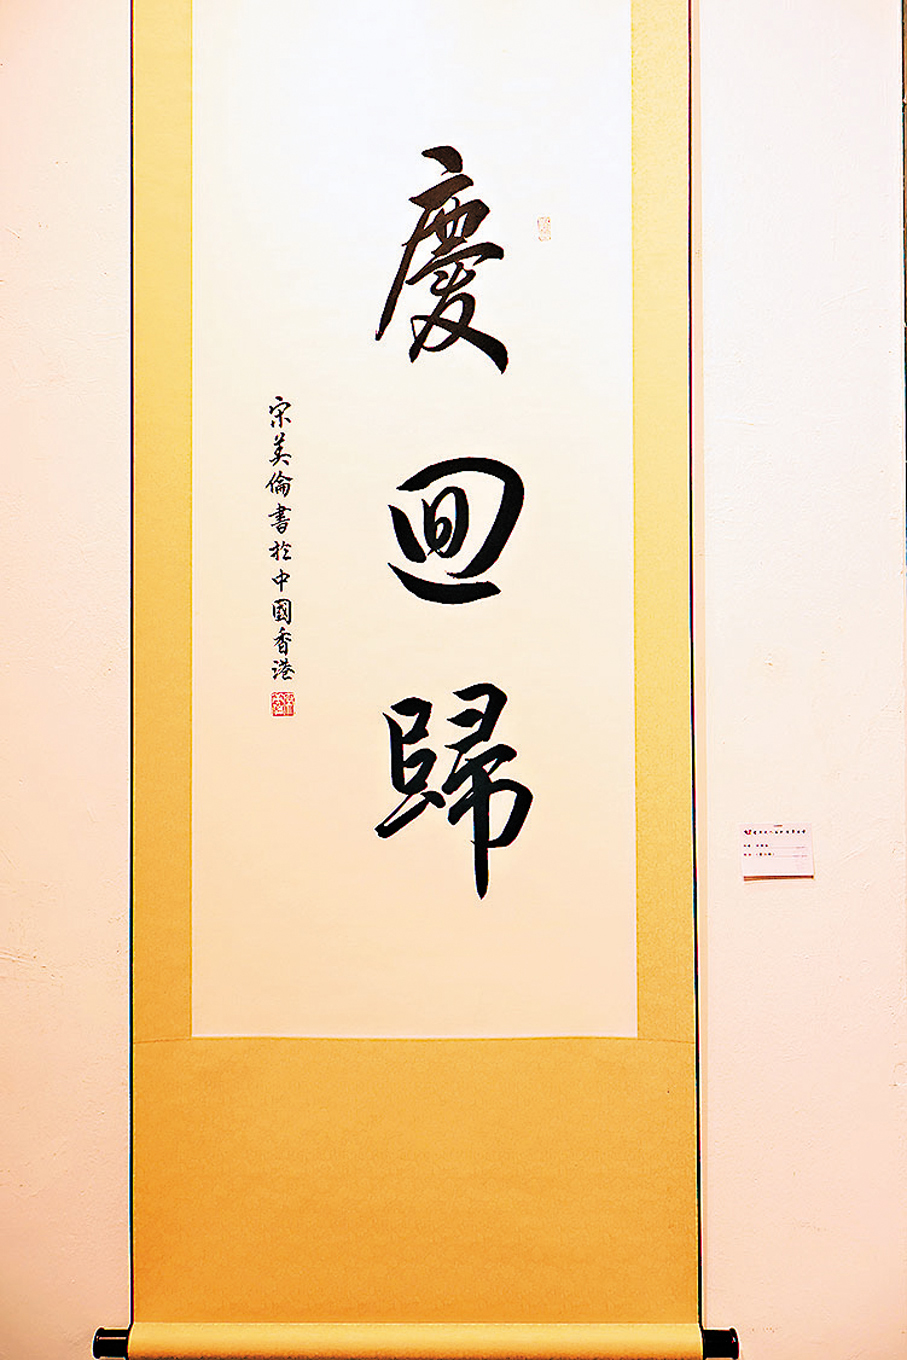 慶回歸
宋美倫書於中國香港